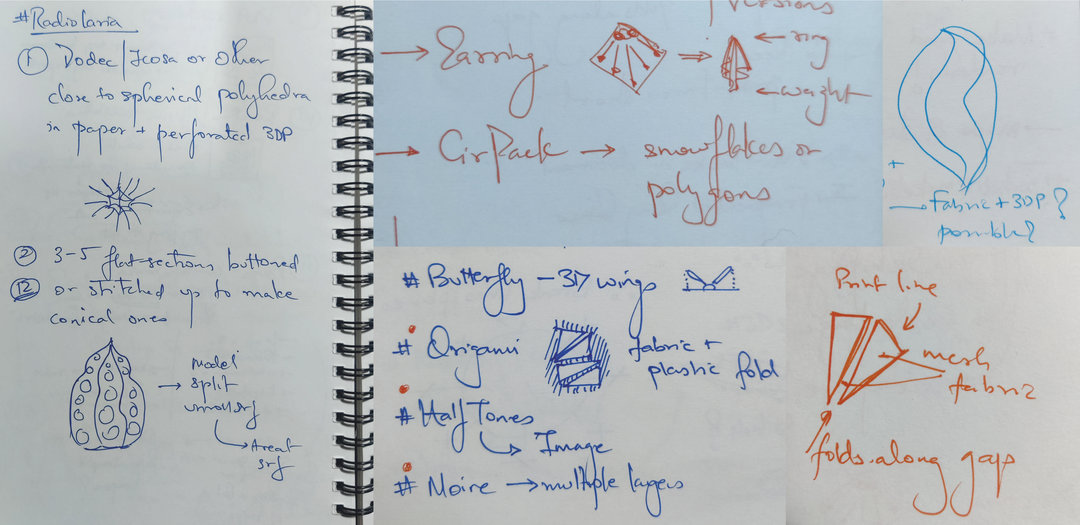 #Radiolaria
① Dodec/Icosa or other
close to spherical polyhedra
in paper + perforated 3DP
② 3-5 flat sections buttoned
⑫ or stitched up to make
conical ones
→ model
split
→ Areal
srf
versions
→ Earring → ← ring
← weight
→ CirPack → snowflakes or
polygons
+
→ Fabric + 3DP?
possible?
# Butterfly - 3D wings
# Origami fabric +
plastic fold
# HalfTones
→ Image
# Moire → multiple layers
Print line
mesh
fabric
folds along gaps